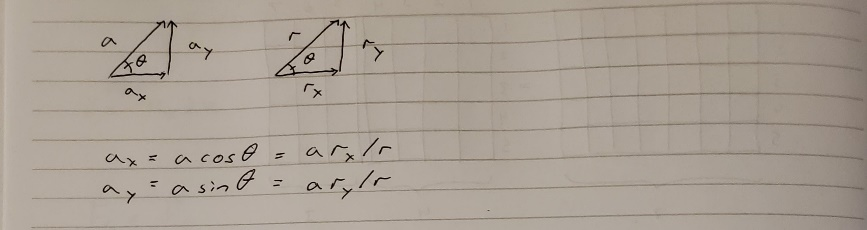 a θ a_y r θ r_y
a_x r_x
a_x = a cos θ = a r_x / r
a_y = a sin θ = a r_y / r